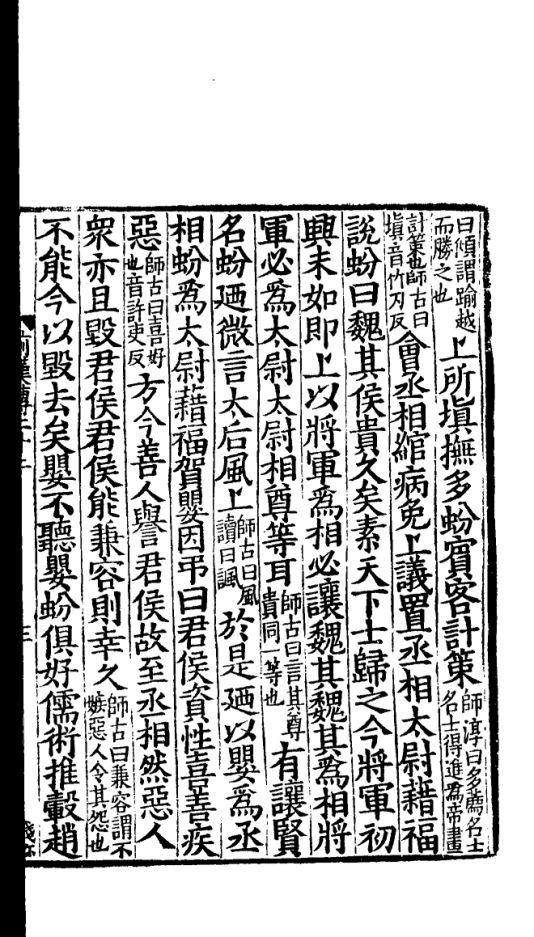 曰傾謂踰越
而勝之也
上所塡撫多蚡賓客計策
師淳曰多薦名士
名士得進爲帝畫
計策也師古曰
塡音竹刃反
會丞相綰病免上議置丞相太尉藉福
說蚡曰魏其侯貴久矣素天下士歸之今將軍初
興未如即上以將軍爲相必讓魏其魏其爲相將
軍必爲太尉太尉相尊等耳
師古曰言其尊
貴同一等也
有讓賢
名蚡廼微言太后風上
師古曰風
讀曰諷
於是廼以嬰爲丞
相蚡爲太尉藉福賀嬰因弔曰君侯資性喜善疾
惡
師古曰喜好
也音許吏反
方今善人譽君侯故至丞相然惡人
衆亦且毀君侯君侯能兼容則幸久
師古曰兼容謂不
嫉惡人令其怨也
不能今以毀去矣嬰不聽嬰蚡俱好儒術推轂趙
三